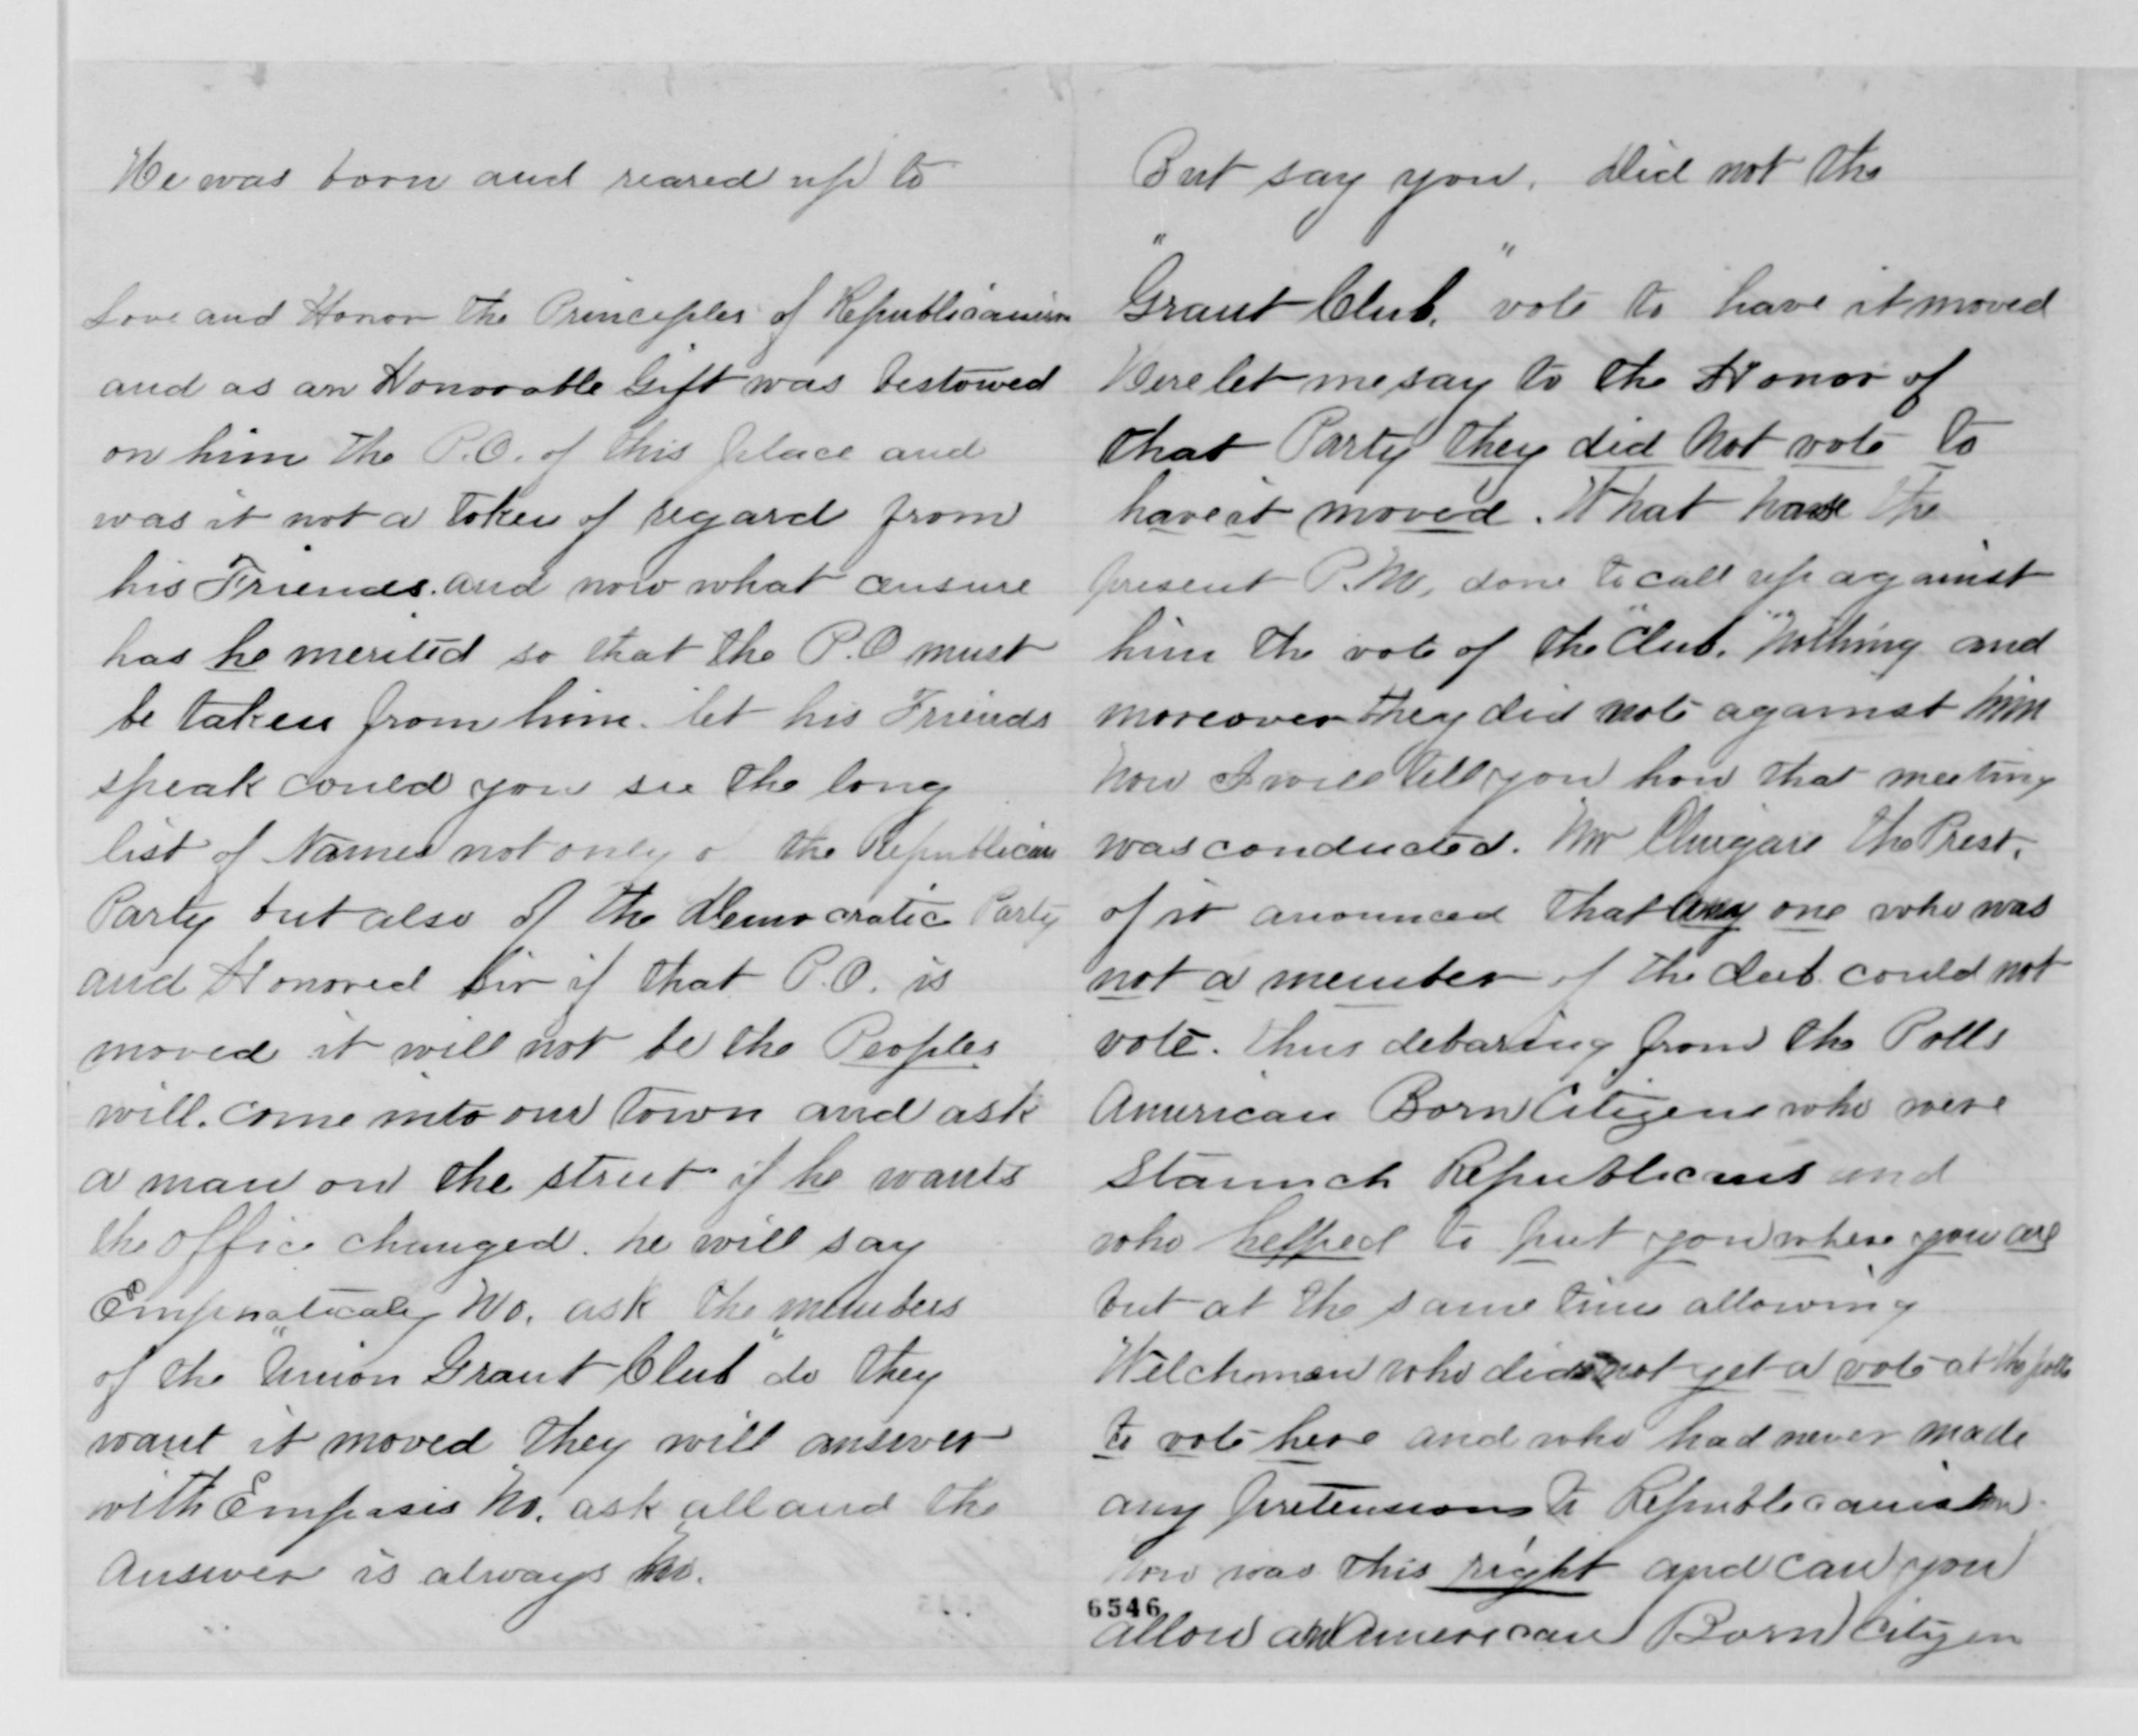 He was born and reared up to
Love and Honor the Principles of Republicanism
and as an Honorable Gift was bestowed
on him the P.O. of this place and
was it not a token of regard from
his Friends. and now what censure
has he merited so that the P.O must
be taken from him. let his Friends
speak could you see the long
list of Names not only of the Republican
Party but also of the Democratic Party
and Honored Sir if that P.O. is
moved it will not be the Peoples
will. come into our town and ask
a man on the street if he wants
the office changed. he will say
Emphaticaly No. ask the members
of the "Union Grant Club" do they
want it moved they will answer
with Emphasis No. ask all and the
Answer is always No.
But say you. Did not the
"Grant Club." vote to have it moved
Here let me say to the Honor of
that Party they did Not vote to
have it moved. What has the
present P.M. done to call up against
him the vote of the "Club." Nothing and
moreover they did not against him
Now I will tell you how that meeting
was conducted. Mr the Prest.
of it anounced that any one who was
not a member of the Club. could not
vote. thus debaring from the Polls
American Born Citizens who were
Staunch Republicans and
who helped to put you where you are
but at the same time allowing
Welchmen who did not get a vote at the polls
to vote here and who had never made
any pretensions to Republicanism.
now was this right and can you
6546
allow an American Born Citizen